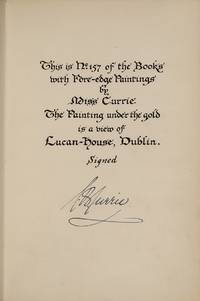 This is No. 157 of the Books
with Fore-edge Paintings
by
Miss Currie
The Painting under the gold
is a view of
Lucan-House, Dublin.
Signed
C B Currie